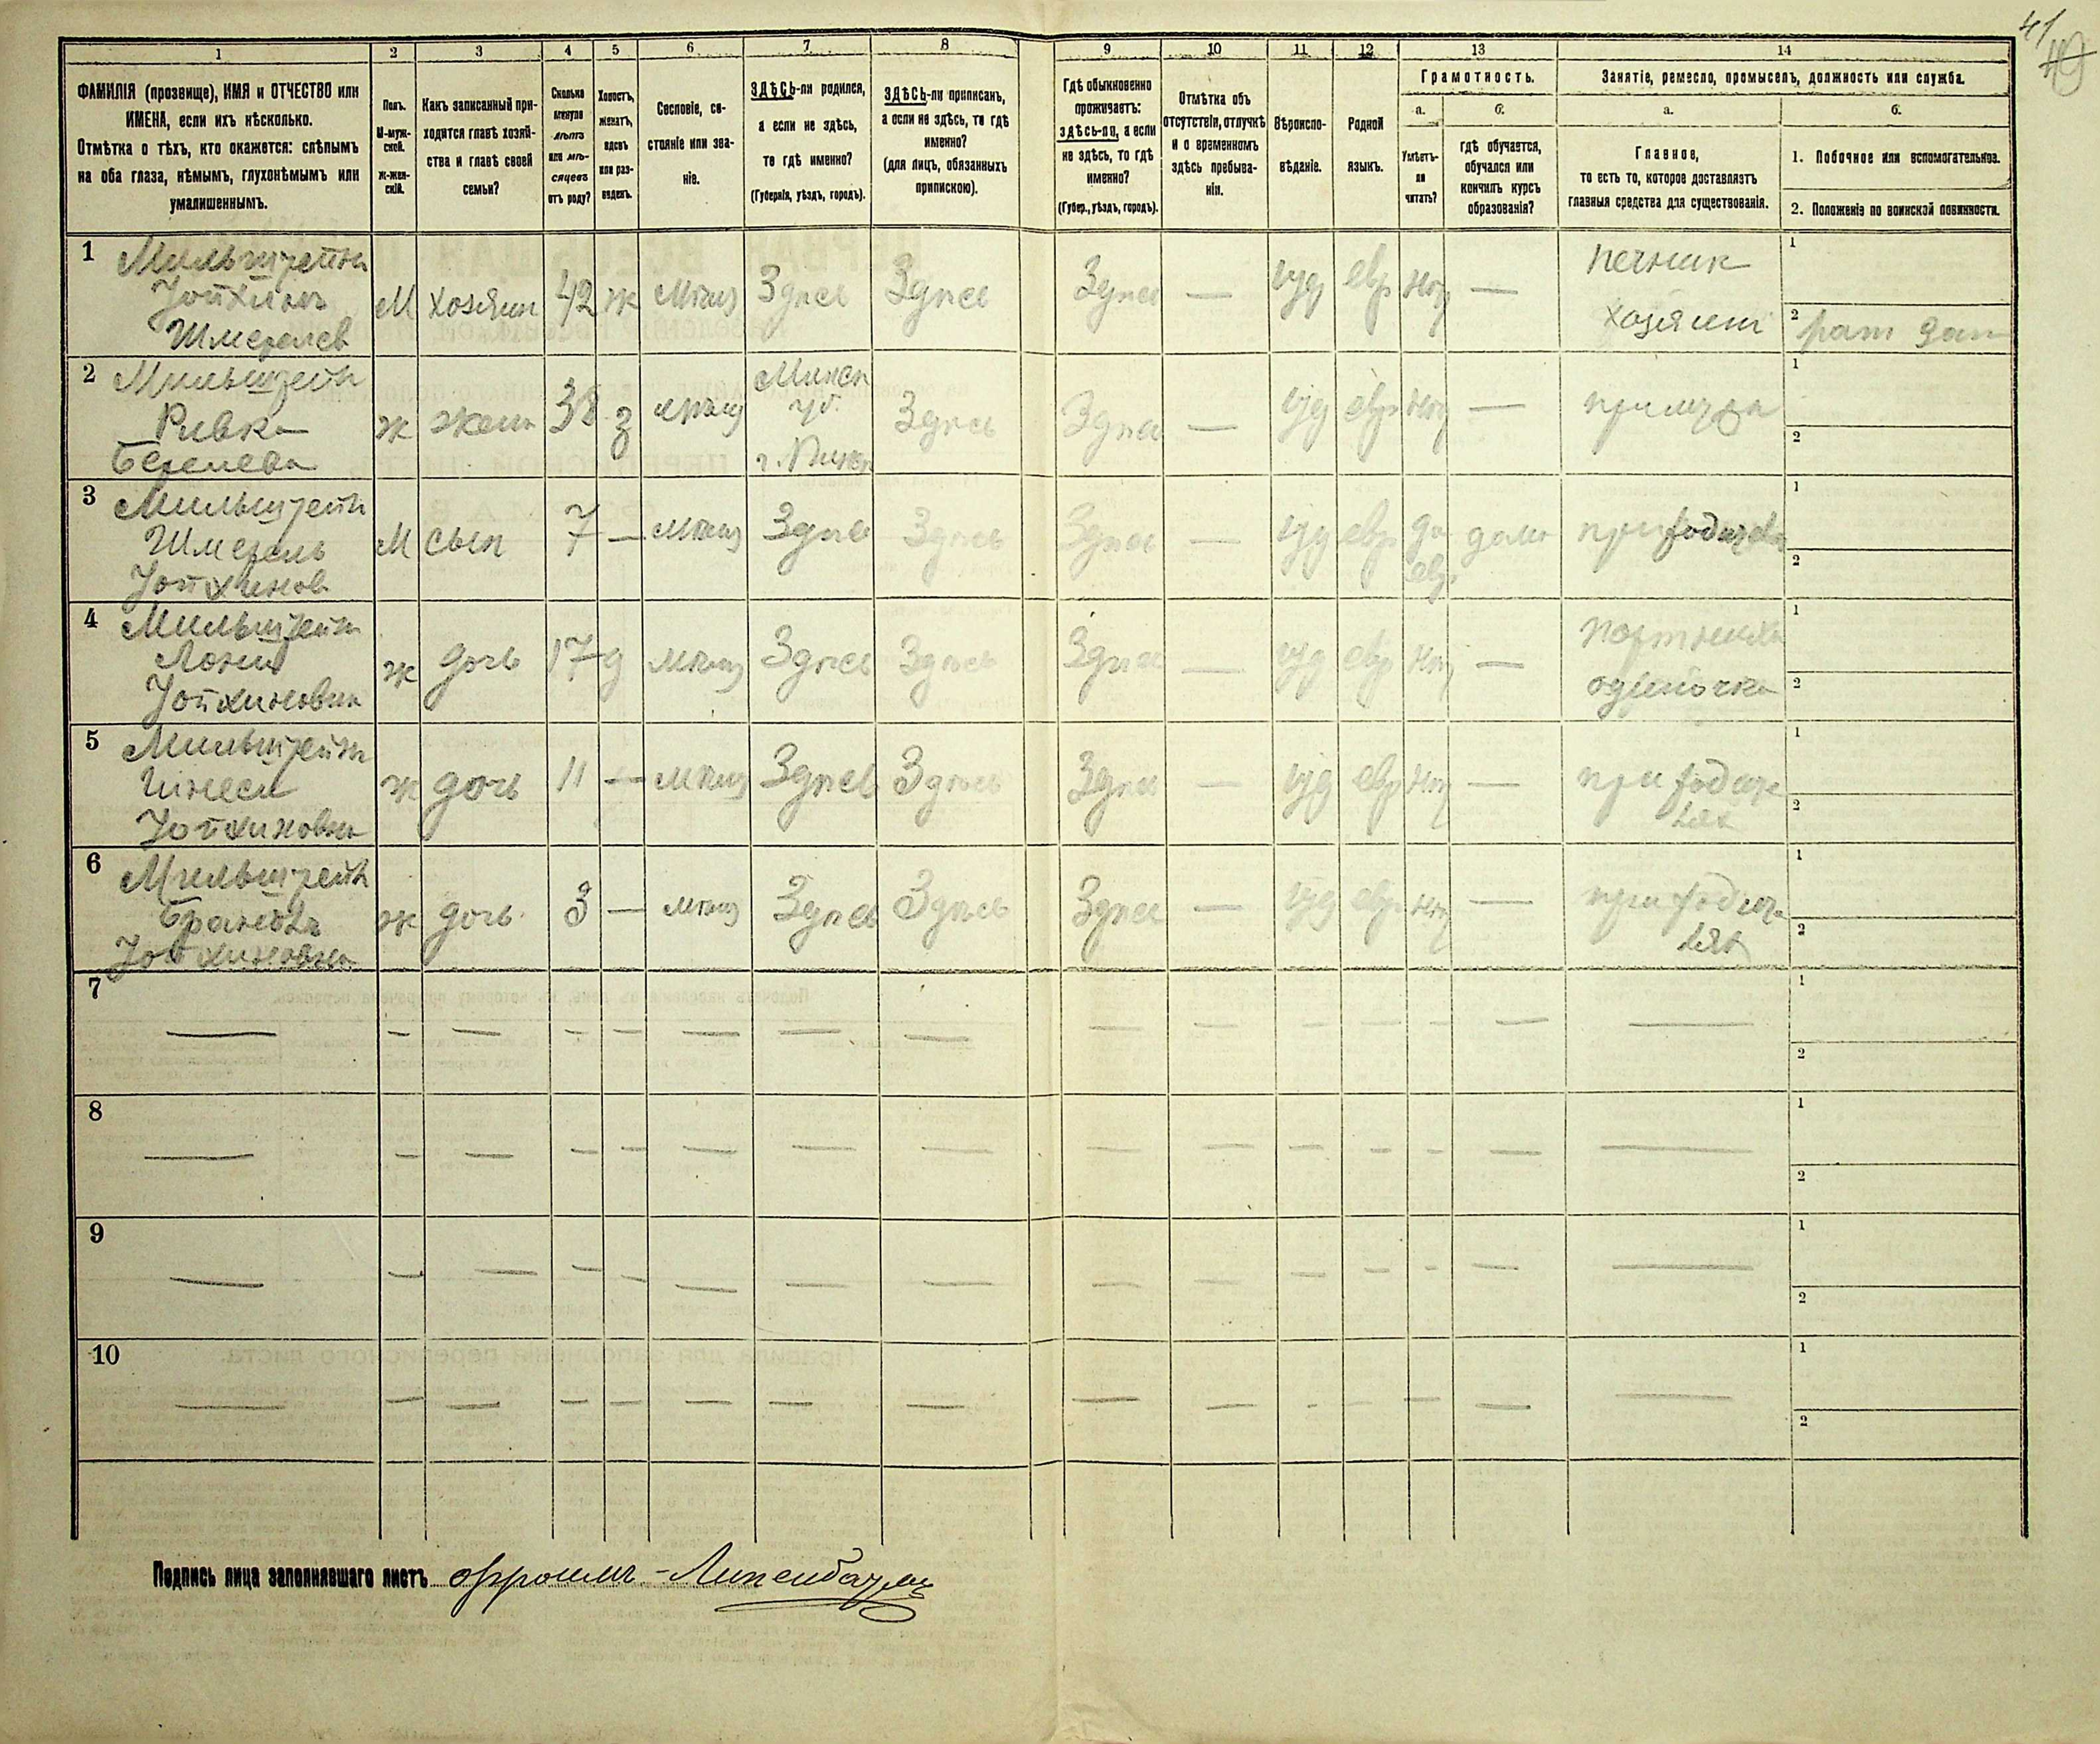 41
1 2 3 4 5 6 7 8 9 10 11 12 13 14
ФАМИЛІЯ (прозвище), ИМЯ и ОТЧЕСТВО или
ИМЕНА, если ихъ нѣсколько.
Отмѣтка о тѣхъ, кто окажется: слѣпымъ
на оба глаза, нѣмымъ, глухонѣмымъ или
умалишеннымъ.
Полъ.
М-муж-
ской.
Ж-жен-
скій.
Какъ записанный при-
ходится главѣ хозяй-
ства и главѣ своей
семьи?
Сколько
минуло
лѣтъ
или мѣ-
сяцевъ
отъ роду?
Холостъ,
женатъ,
вдовъ
или раз-
веденъ.
Сословіе, со-
стояніе или зва-
ніе.
ЗДѢСЬ-ли родился,
а если не здѣсь,
то гдѣ именно?
(Губернія, уѣздъ, городъ).
ЗДѢСЬ-ли приписанъ,
а если не здѣсь, то гдѣ
именно?
(для лицъ, обязанныхъ
припискою).
Гдѣ обыкновенно
проживаетъ:
здѣсь-ли, а если
не здѣсь, то гдѣ
именно?
(Губер., уѣздъ, городъ).
Отмѣтка объ
отсутствіи, отлучкѣ
и о временномъ
здѣсь пребыва-
ніи.
Вѣроиспо-
вѣданіе.
Родной
языкъ.
Грамотность.
а.
Умѣетъ-
ли
читать?
б.
гдѣ обучается,
обучался или
кончилъ курсъ
образованія?
Занятіе, ремесло, промыселъ, должность или служба.
а.
Главное,
то есть то, которое доставляетъ
главныя средства для существованія.
б.
1. Побочное или вспомогательное.
2. Положеніе по воинской повинности.
1 Мильштейн
Шмерелев
М хозяин 42 ж Мѣщ Здпсь Здпсь Здпсь — іуд евр нѣт —
печник
хозяин
1
2
2 Мильштейн
Ривка
Берелева
ж жена 38 з мѣщ
Минск
губ.
г. Пинск
Здпсь Здпсь — іуд евр нѣт — при муже
1
2
3 Мильштейн
Шмерель
Иойхинов
М сын 7 — мѣщ Здпсь Здпсь Здпсь — іуд евр да
евр
дома при родителях
1
2
4 Мильштейн
Иойхиновна
ж дочь 17 д мѣщ Здпсь Здпсь Здпсь — іуд евр нѣт —
портниха
одиночка
1
2
5 Мильштейн
Иойхиновна
ж дочь 11 — мѣщ Здпсь Здпсь Здпсь — іуд евр нѣт —
при родите
лях
1
2
6 Мильштейн
Иойхиновна
ж дочь 3 — мѣщ Здпсь Здпсь Здпсь — іуд евр нѣт —
при родите
лях
1
2
7 — — — — — — — — — — — — — — —
1
2
8 — — — — — — — — — — — — — — —
1
2
9 — — — — — — — — — — — — — — —
1
2
10 — — — — — — — — — — — — — — —
1
2
Подпись лица заполнявшаго листъ